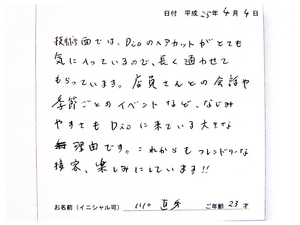 日付 平成25年4月4日
技術面では、Dioのヘアカットがとても
気に入っているので、長く通わせて
もらっています。店員さんとの会話や
季節ごとのイベントなど、なじみ
やすさもDioに来ている大きな
理由です。これからもフレンドリーな
接客、楽しみにしています!!
お名前(イニシャル可) 川口 直 ご年齢 23才